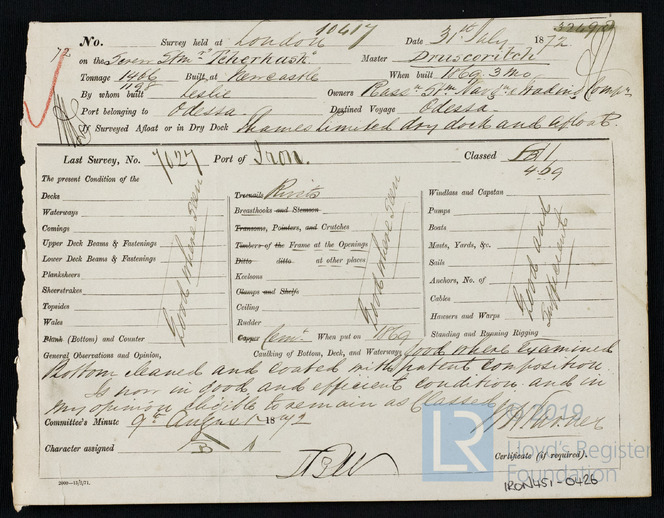 10417
No. Survey held at London Date 31st July 1872
72 on the Screw Stmr Tchihatchoff Master
Tonnage 1406 Built at Newcastle When built 1869. 3 mo
1198
By whom built Leslie Owners Russn Stm Navn & Trading Compy
Port belonging to Odessa. Destined Voyage Odessa.
If Surveyed Afloat or in Dry Dock Thames limited dry dock and afloat.
Last Survey, No. 7627 Port of Iron. Classed
4.69
The present Condition of the
Decks
Waterways
Comings
Upper Deck Beams & Fastenings
Lower Deck Beams & Fastenings
Planksheers
Sheerstrakes
Topsides
Wales
Plank (Bottom) and Counter
Good where seen
Treenails Rivets
Breasthooks and Stemson
Transons, Pointers, and Crutches
Timbers of the Frame at the Openings
Ditto ditto. at other places
Keelsons
Clamps and Shelfs
Ceiling
Rudder
Copper Cemt. When put on 1869
Good where seen
Windlass and Capstan
Pumps
Boats
Masts, Yards, &c.
Sails
Anchors, No. of
Cables
Hawsers and Warps
Standing and Running Rigging
Good and Sufficient
General Observations and Opinion, Caulking of Bottom, Deck, and Waterways Good where Examined
Bottom cleaned and coated with patent composition.
Is now in good and efficient condition and in
my opinion eligible to remain as Classed.
Committee's Minute 9th August 1872
Character assigned
B 1
Certificate (if required).
2000—15/2/71.
© 2019
LR Lloyd's Register
Foundation
IRON451-0426